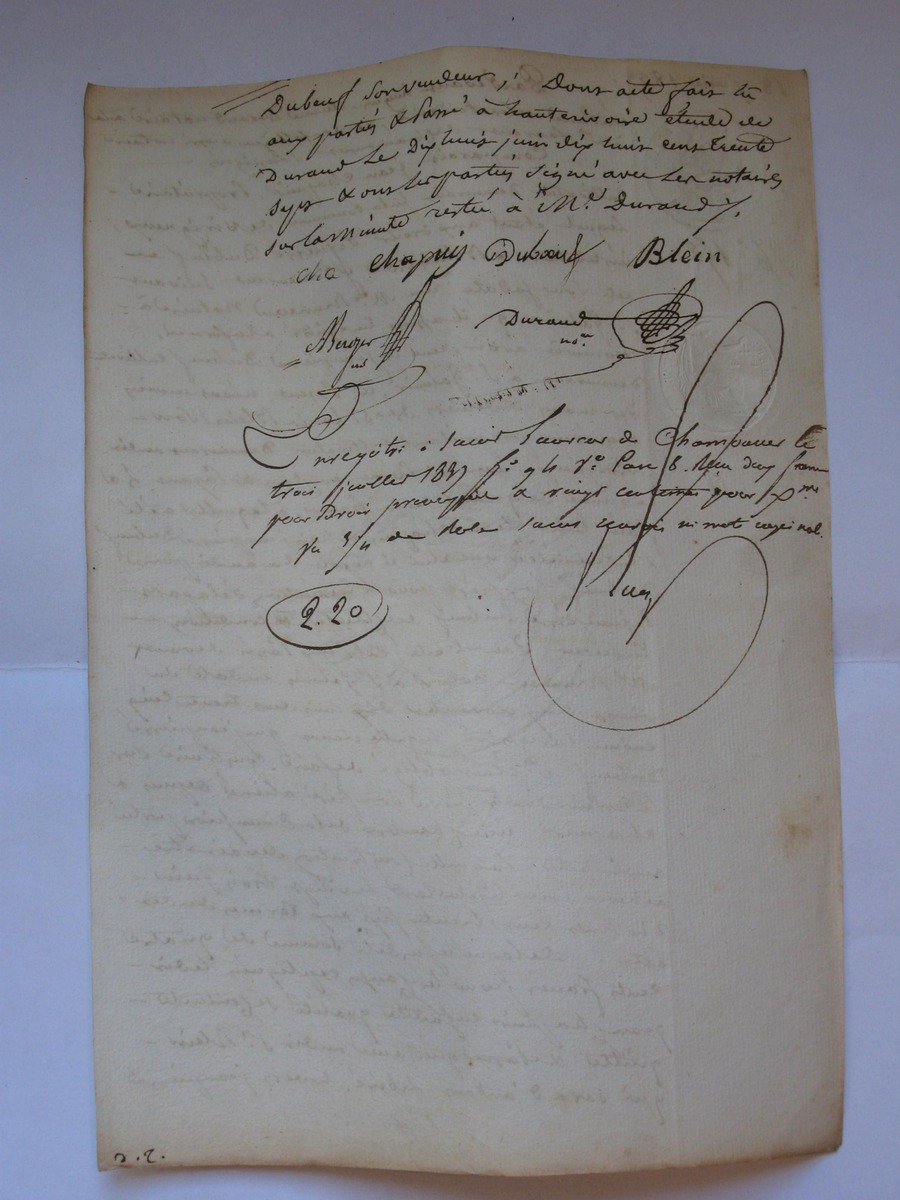 Dubeuf son vendeur, Dont acte fait lu
aux partiés & Passé à hauterivoire étude de
Durand Le Dix huit juin dix huit cent trente
sept & ont les partiés signé avec les notaires
sur la minute restée à Me. Durand
cha chapuis Duboeuf Blein
Berger Durand
no nore
Enregistré à Saint Laurent de Chamousset le
trois juillet 1837 fo. 94 Vo. Case 8. Reçu deux francs
pour Droit principal & vingt centimes pour Dme
sans renvoi ni mot rayé nul.
2.20
2.2.